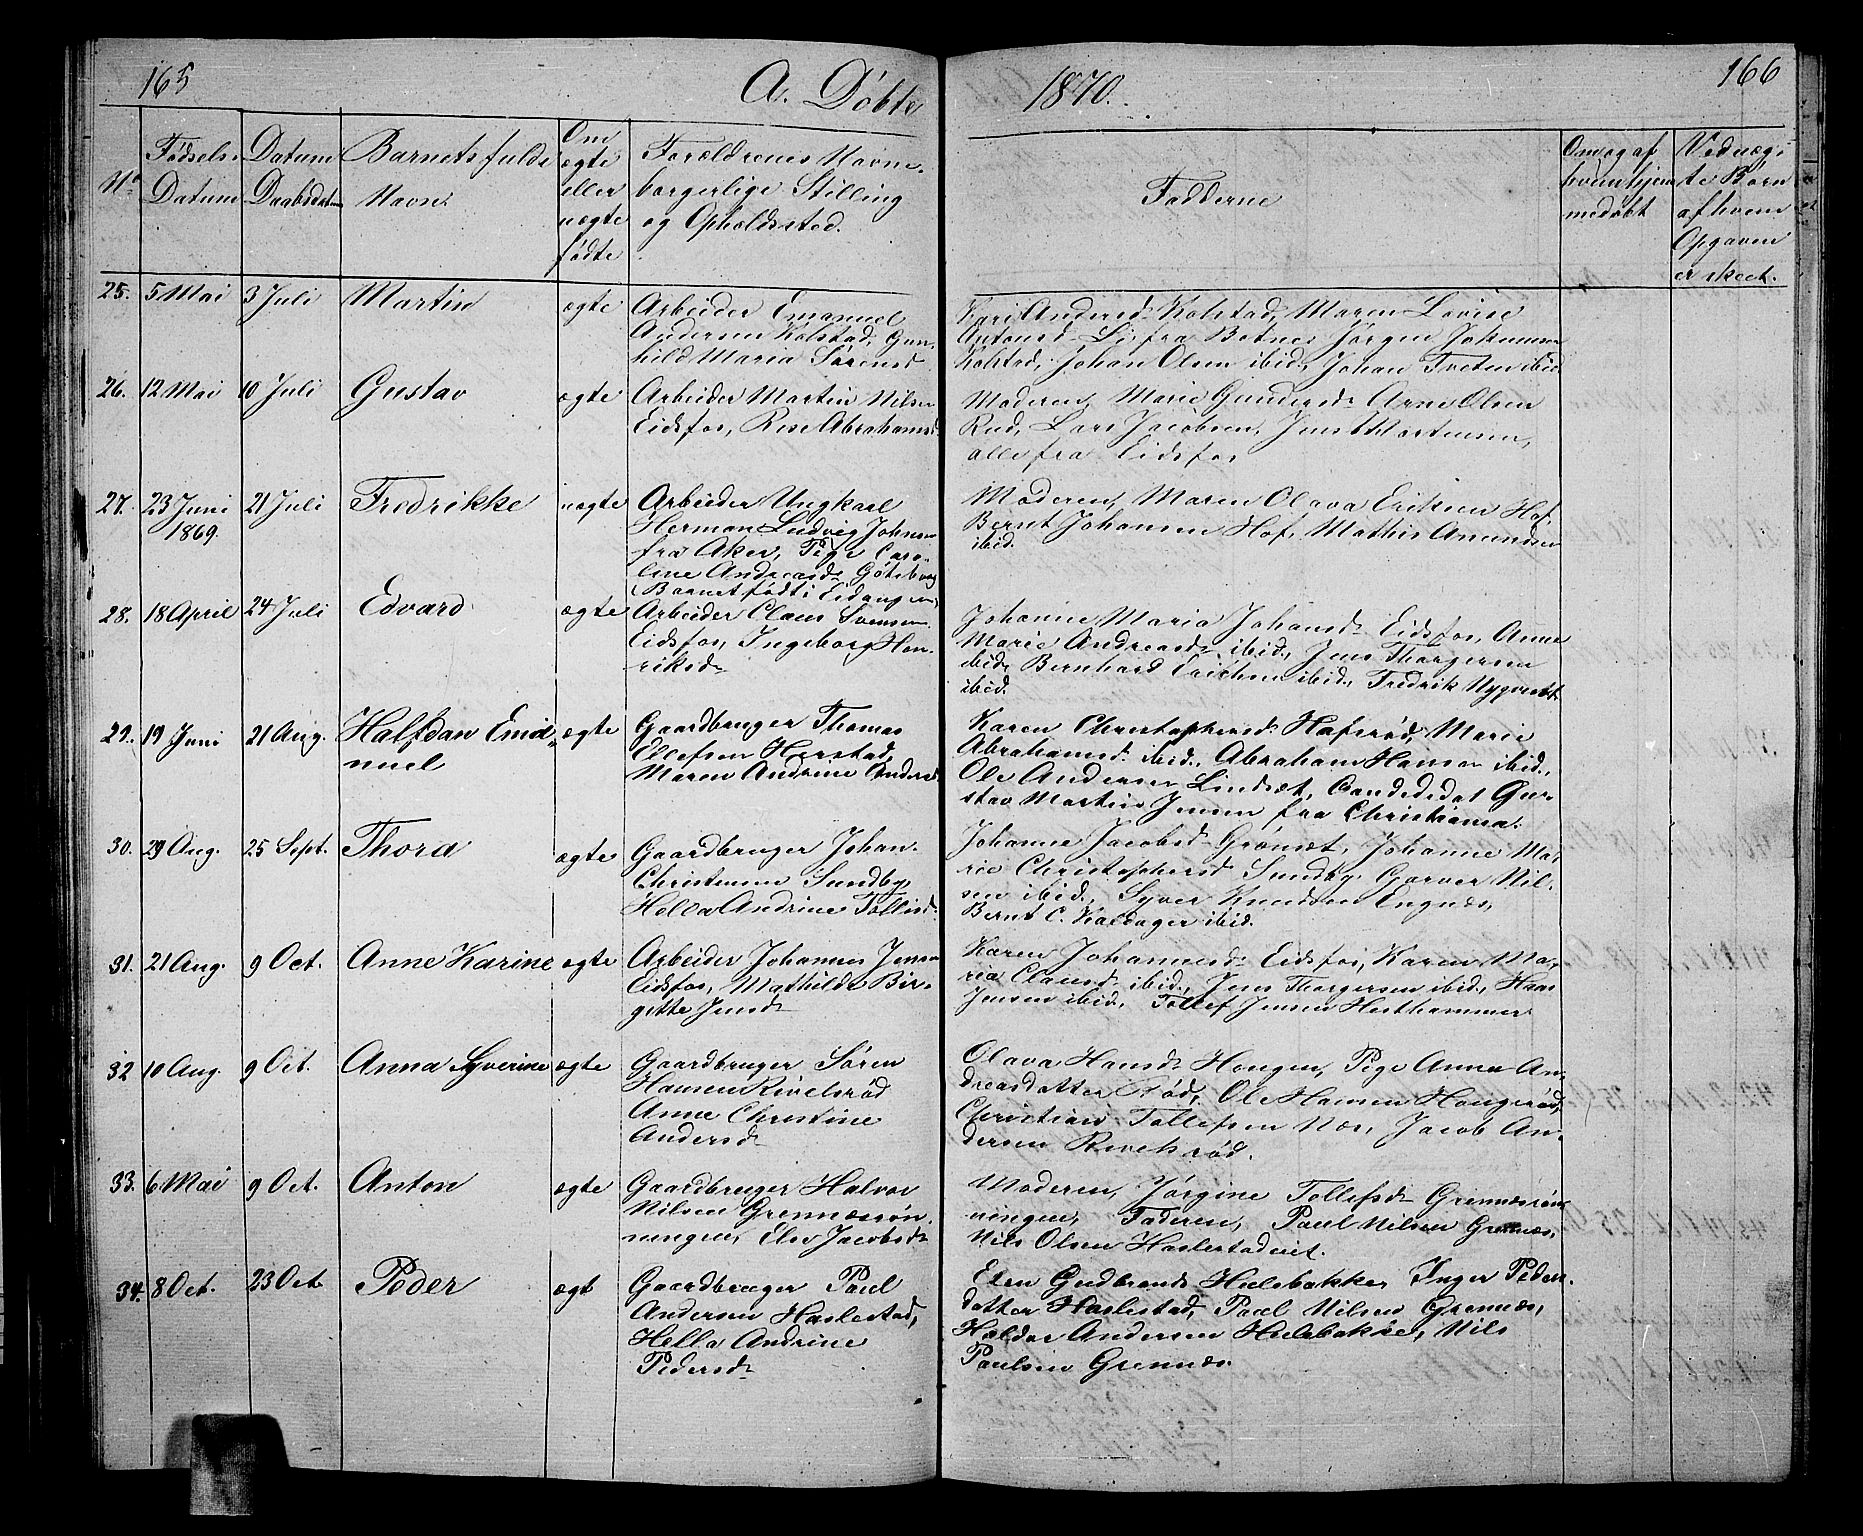 165
A. Döbte
1870.
166
No
Fødsels-
Datum
Datum
Daabsdatum
Barnets fulde
Navn.
Om
ægte
eller
uægte
fødte
Forældrenes Navne
borgerlige Stilling
og Opholdssted.
Fadderne
Om og af
hvem hjem
medøbt
Ved uæg-
te Børn
af hvem
Opgaven
er skeet.
25. 5 Mai 3 Juli Martin ægte
Arbeider Emanuel
Andersen Kolstad, Gun-
hild Maria Sørensd
Kari Andersd Kolstad, Maren Lovise
Antonsd Li fra Botne, Jørgen Johannesen
Kolstad, Johan Olsen ibid., Johan Tveten ibid.
26. 12 Mai 10 Juli Gustav ægte
Arbeider Martin Nilsen
Eidsfos, Rise Abrahamsd
Moderen, Marie Gundersd Arne Olsen
Rud, Lars Jacobsen, Jens Mortensen,
alle fra Eidsfos
27. 23 Juni 21 Juli Fredrikke uægte
1869.
Arbeider Ungkarl
Herman Ludvig Johnsen
fra Aker, Pige Caro-
line Andreasd Gøteborg
(Barnet født i Eidanger)
Moderen, Maren Olava Eriksen Hof,
Bernt Johansen Hof, Mathis Amundsen
ibid.
28. 18 April 24 Juli Edvard ægte
Arbeider Claus Svensen
Eidsfos, Ingeborg Hen-
riksd
Johanne Maria Johansd Eidsfos, Anne
Marie Andreasd ibid., Jens Thorgersen
ibid, Bernhard Erichsen ibid., Fredrik Nyqvist
ibid.
29. 19 Juni 21 Aug. Halfdan Ema- ægte
nuel
Gaardbruger Thomas
Ellefsen Harstad,
Maren Andrine Andersd
Karen Christophersd Hafsrød, Marie
Abrahamsd ibid., Abraham Hansen ibid.,
Ole Andersen Lindsæt, Candidat Gu-
stav Martin Jensen fra Christiania.
30. 29 Aug. 25 Sept. Thora ægte
Gaardbruger Johan
Christensen Sundby,
Hella Andrine Tollefsd
Johanne Jacobsd Grønsæt, Johanne Ma-
rie Christophersd Sundby Garver Nil-
sen ibid., Syver Knudsen Engnæs,
Bernt C. Kaldager ibid.
31. 21 Aug. 9 Oct. Anne Karine ægte
Arbeider Johannes Jensen
Eidsfos, Mathilde Bir-
gitte Jensd
Karen Johannesd Eidsfos, Karen Ma-
ria Clausd ibid., Jens Thorgersen ibid., Hans
Jensen ibid., Tollef Jensen Hesthammer
32 10 Aug. 9 Oct. Anna Syverine ægte
Gaardbruger Søren
Hansen Rivelsrød
Anne Christine
Andersd
Olava Hansd Haugen, Pige Anna An-
dreasdatter Rød, Ole Hansen Haugerød,
Christian Tollefsen Næs, Jacob An-
dersen Revelsrød.
33. 6 Mai 9 Oct. Anton ægte
Gaardbruger Halvor
Nilsen Grennesrøn-
ningen, Else Jacobsd
Moderen, Jørgine Tollefsd Grennesrøn-
ningen, Faderen, Paul Nilsen Grennæs,
Nils Olsen Haslestadeiet.
34. 8 Oct. 23 Oct Peder ægt
Gaardbruger Paul
Andersen Haslestad,
Hella Andrine
Pedersd
Elen Gudbrands Hulebakke, Inger Peders-
datter Haslestad, Paul Nilsen Grennæs,
Haldor Andersen Hulebakke, Nils
Paulsen Grennæs